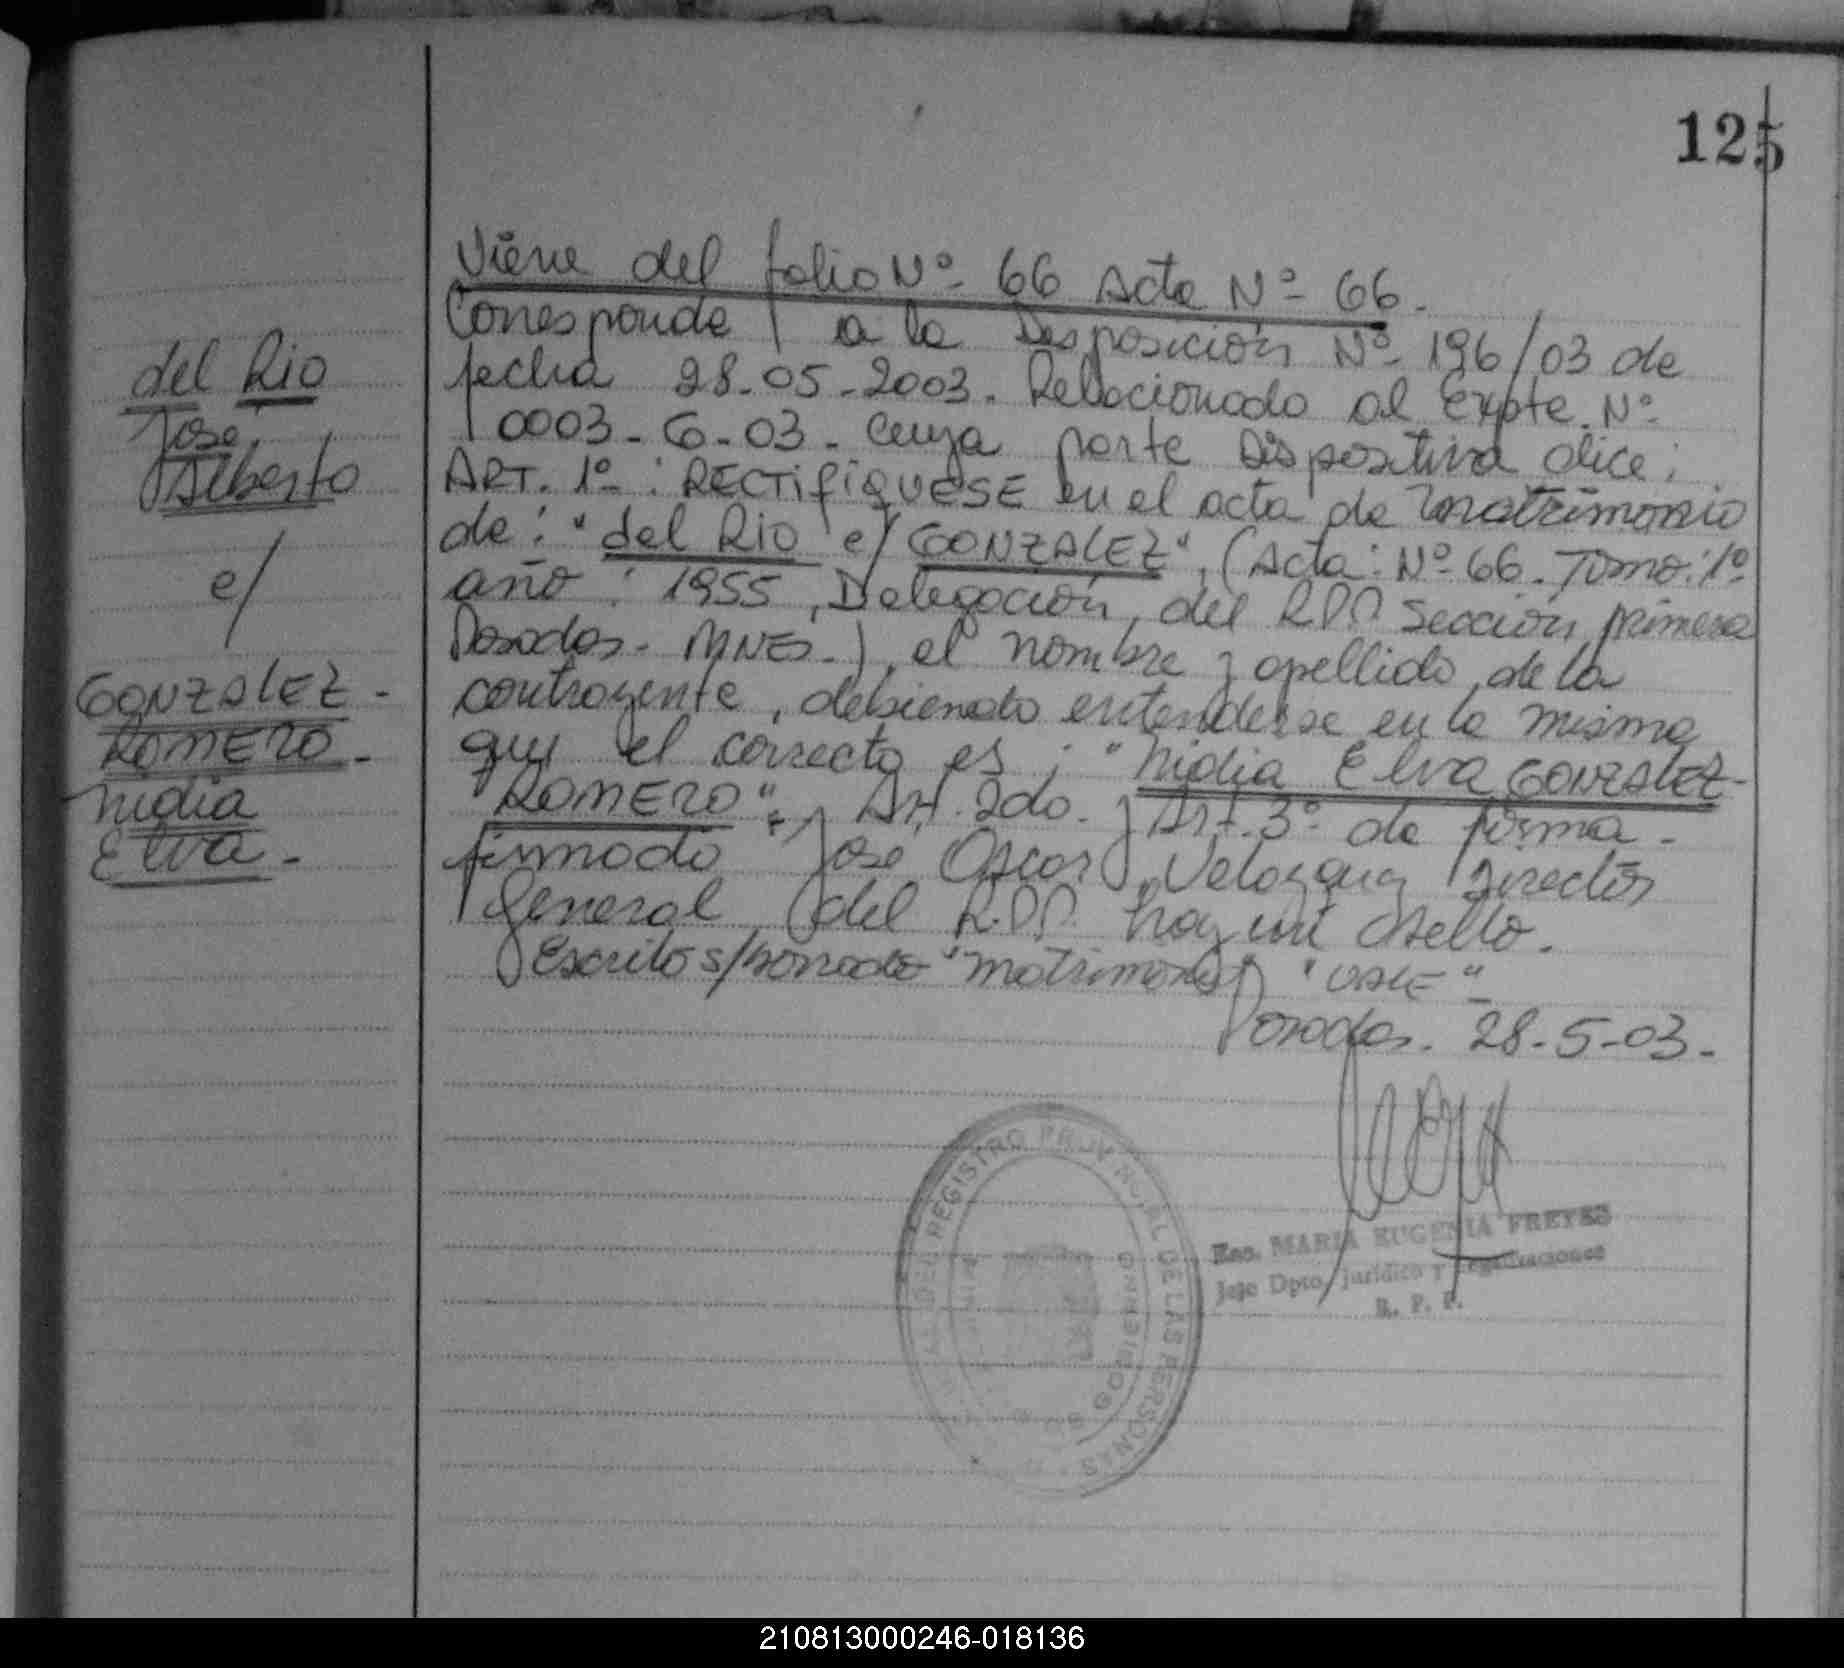 125
Viene del folio Nº 66 Acta Nº 66.
Corresponde a la Disposición Nº 196/03 de
fecha 28-05-2003. Relacionado al Expte. Nº
0003-G-03. Cuya parte Dispositiva dice:
ART. 1º: RECTIFIQUESE en el acta de matrimonio
de: "del Rio c/ GONZALEZ", (Acta: Nº 66. Tomo: 1º
año: 1955, Delegación del R.P.P. Sección primera
Posadas - MNES.), el nombre y apellido de la
contrayente, debiendo entenderse en la misma
que el correcto es: "Nidia Elva GONZALEZ-
ROMERO". Art. 2do. y Art. 3º de forma -
firmado José Oscar Velazquez Director
General del R.P.P. hay un sello.
Escrito s/borrado "matrimonio" "VALE"
Posadas. 28-5-03.
del Rio
José
Alberto
c/
GONZALEZ -
ROMERO -
Nidia
Elva -
REGISTRO PROVINCIAL DE LAS PERSONAS
Esc. MARIA EUGENIA FREYES
Jefe Dpto. Jurídico y Legalizaciones
R. P. P.
210813000246-018136